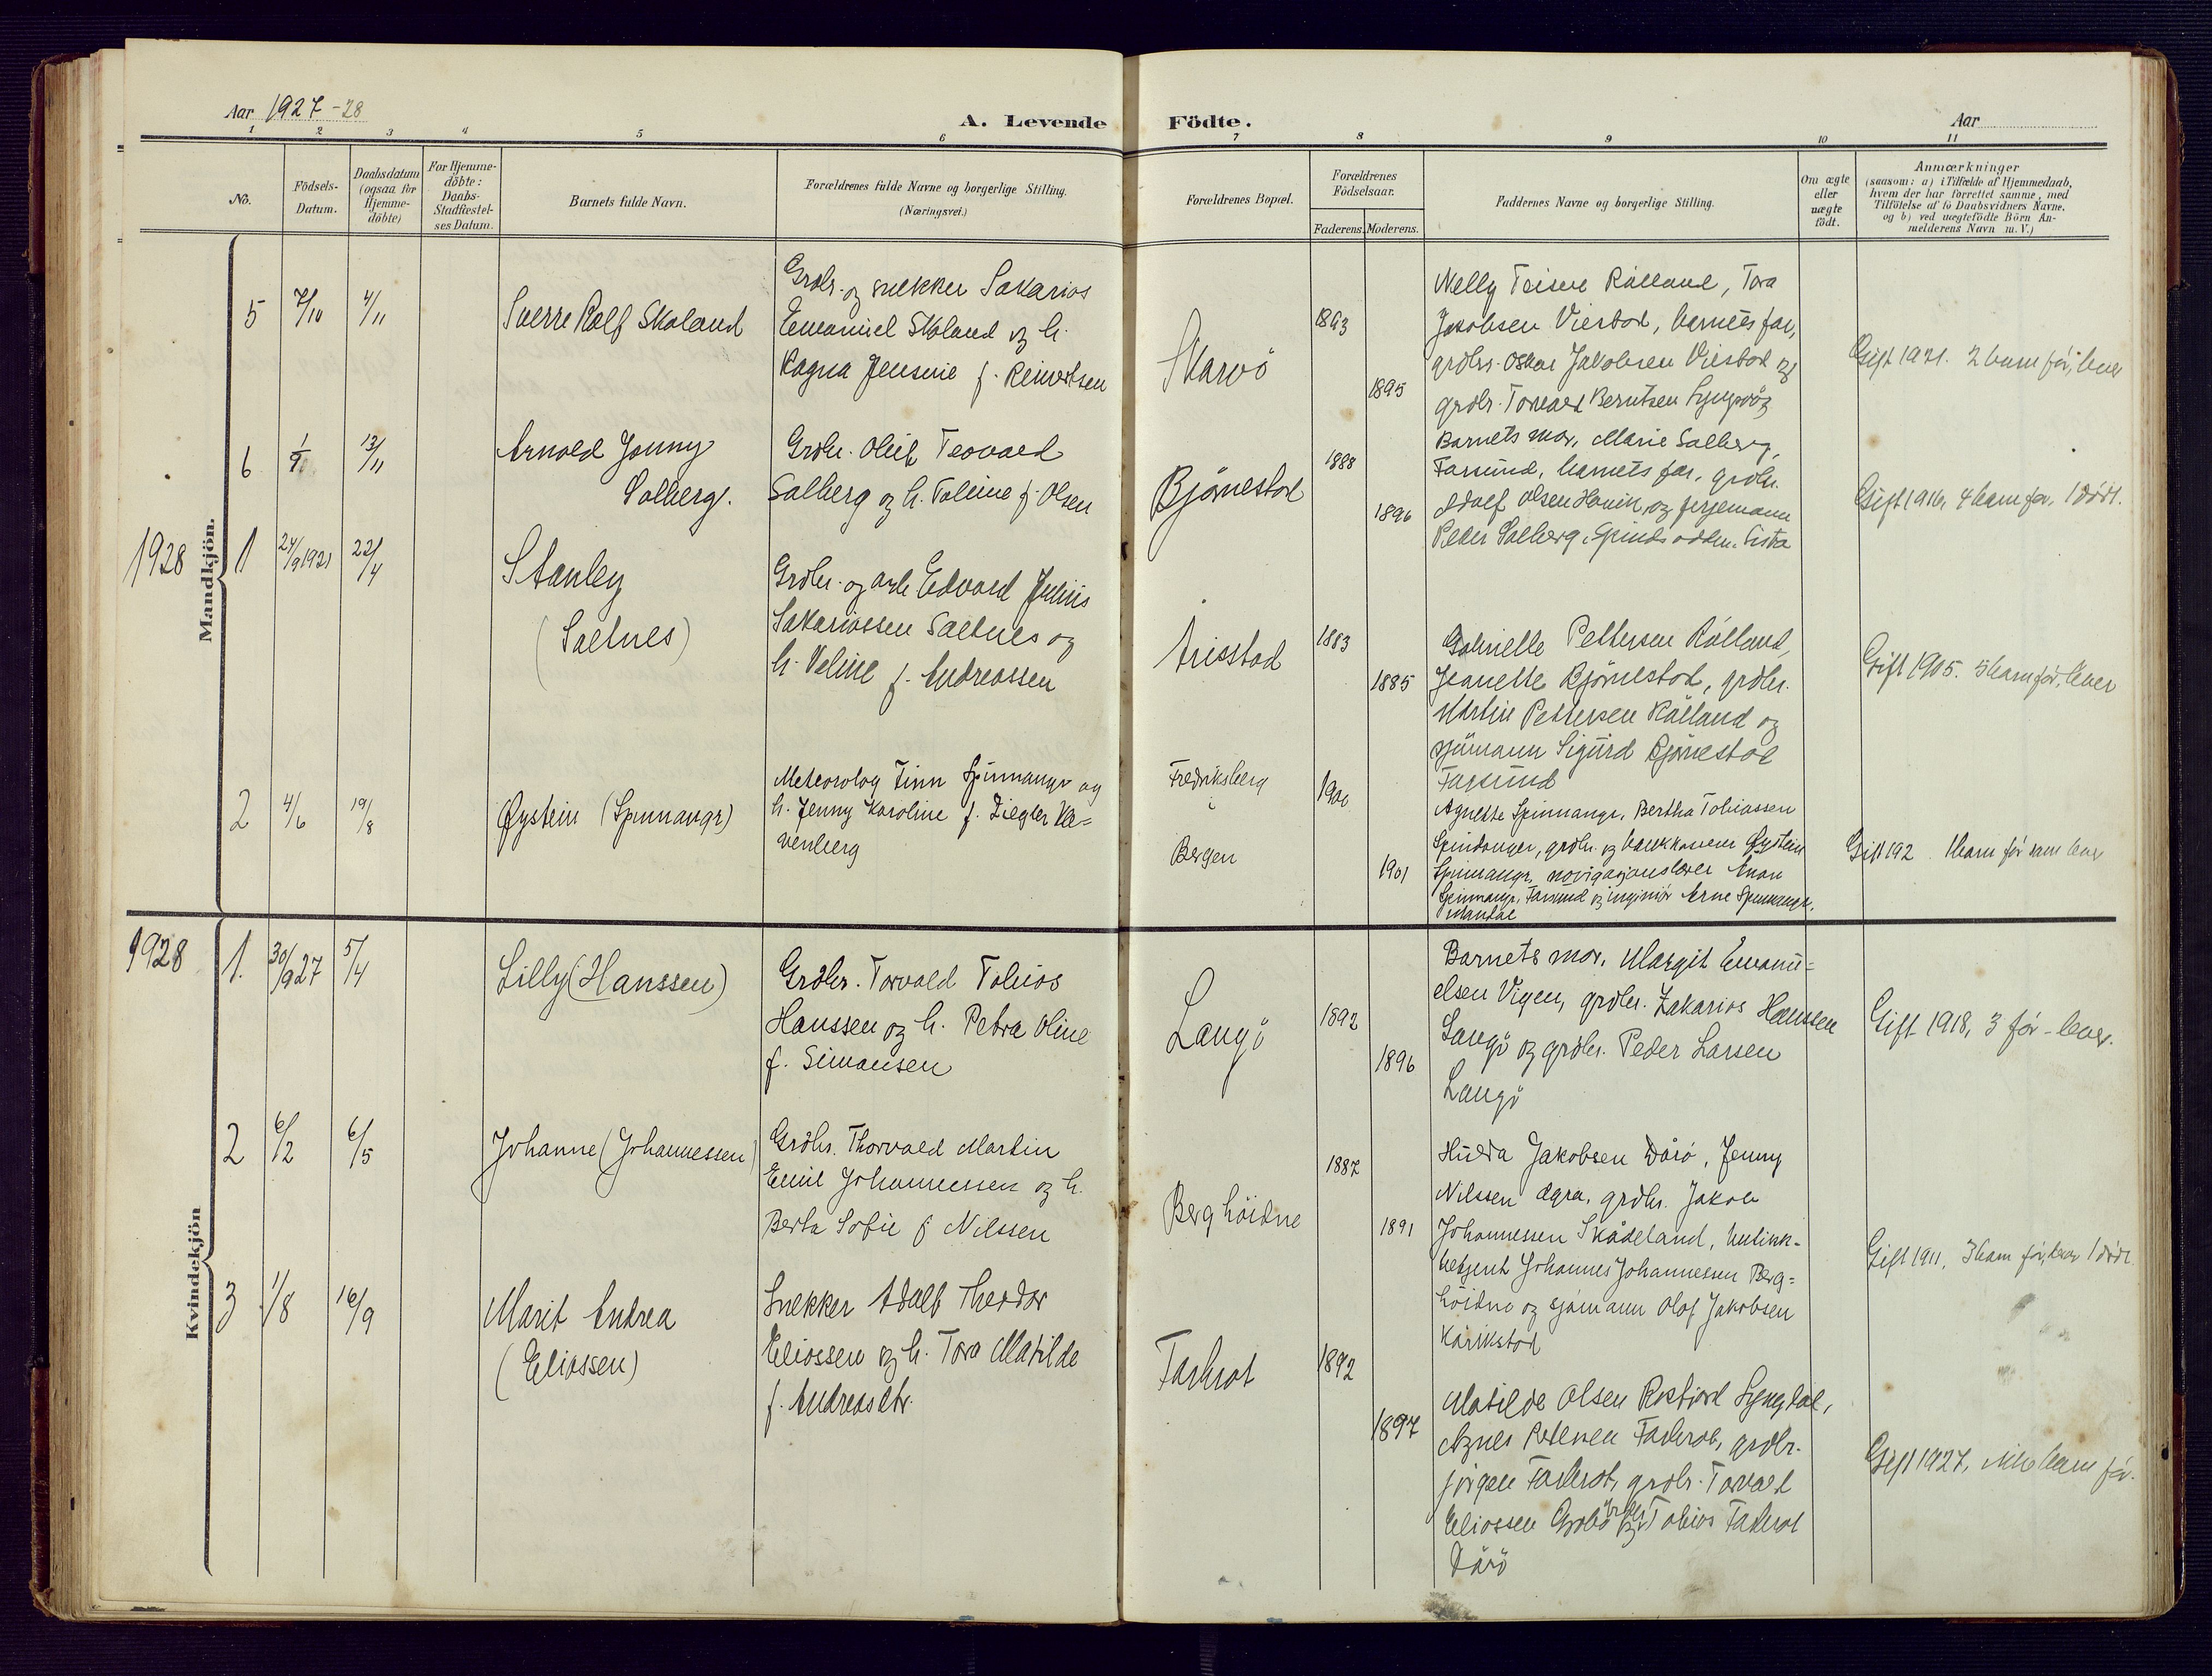 Aar 1927-28
A. Levende Födte.
Aar
1 2 3 4 5 6 7 8 9 10 11
No.
Födsels-
Datum.
Daabsdatum
(ogsaa for
Hjemme-
döbte)
For Hjemme-
döbte:
Daabs-
Stadfæstel-
ses Datum.
Barnets fulde Navn.
Forældrenes fulde Navne og borgerlige Stilling.
(Næringsvei.)
Forældrenes Bopæl.
Forældrenes
Födselsaar.
Faderens. Moderens.
Faddernes Navne og borgerlige Stilling.
Om ægte
eller
uægte
födt.
Anmærkninger
(saasom: a) i Tilfælde af Hjemmedaab,
hvem der har forrettet samme, med
Tilföielse af to Daabsvidners Navne,
og b) ved uægtefödte Börn An-
melderens Navn m.V.)
Mandkjön.
5 7/10 4/11
Sverre Rolf Skoland
Grdbr. og snekker Sakarias
Emanuel Skoland og h.
Ragna Jensine f. Reinertsen
Skarvö
1893
1895
Nelly Rålland, Tora
Jakobsen Viestad, barnets far,
grdbr. Oskar Jakobsen Viestad og
grdbr. Berntsen
Gift 1921. 2 barn før, lever
6 13/11
Arnold Jonny
Solberg.
Grdbr. Oluf Teovald
Solberg og h. Toline f. Olsen
Björnestad
1888
1896
Barnets mor, Marie Solberg,
Farsund, barnets far, grdbr.
Adolf Olsen og ferjemann
Peder Solberg, Spindsodden, Lista
Gift 1916, 4 barn før, 1 dødt.
1928
1 24/9 1921 22/4
Stanley
(Saetnes)
Grdbr. og arb Edvard Julius
Sakariassen Saetnes og
h. Veline f. Andreassen
Årisstad
1883
1885
Gabrielle Pettersen Rålland,
Jeanette Bjørnestad, grdbr.
Martin Pettersen Rålland og
sjømann Sigurd Bjørnestad
Farsund
Gift 1905. 5 barn før, lever
2 4/6 19/8
Øystein (Spinnangr)
Meteorolog Finn Spinnangr og
h. Jenny Karoline f. Ziegler Kle=
venberg
Fredriksberg
i
Bergen
1900
1901
Agnethe Spinnangr, Bertha Tobiassen
Spindanger, grdbr. og bankkasserer Øystein
Spinnangr, navigasjonslærer
Spinnangr, Farsund og ingeniør Arne Spinnangr,
Mandal
Gift 192 . 1 barn før som lever
Kvindekjön
1928
1. 30/9 27 5/4
Lilly (Hanssen)
Grdbr. Torvald Tobias
Hanssen og h. Petra Oline
f. Simonsen
Langö
1892
1896
Barnets mor, Margit Emanu=
elsen Vigen, grdbr. Zakarias Hanssen
Langö og grdbr. Peder Larsen
Langö
Gift 1918, 3 før - lever.
2 6/2 6/5
Johanne (Johannessen)
Grdbr. Thorvald Martin
Emil Johannessen og h.
Berta Sofie f. Nilssen
Berghöidne
1887
1891
Hulda Jakobsen Dårö, Jenny
Nilssen Ågra, grdbr. Jakob
Johannessen Skådeland, butikk-
betjent Johannes Johannessen Berg=
höidne og sjömann Olaf Jakobsen
Karikstad
Gift 1911, 3 barn før, lever 1 dødt.
3 1/8 16/9
Marit Andrea
(Eliassen)
Snekker Adolf Theodor
Eliassen og h. Tora Matilde
f. Andreasdtr.
Farbrot
1892
1897
Matilde Olsen Rosfjord Lyngdal,
Agnes Petersen Farbrot, grdbr.
Jörgen Farbrot, grdbr. Torvald
Eliassen og Tobias Farbrot
Dårö
Gift 1927, ikke barn før.